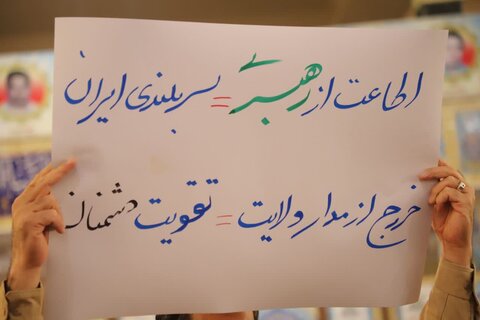 اطاعت از رهبری = سربلندی ایران
خروج از مدار ولایت = تقویت دشمنان